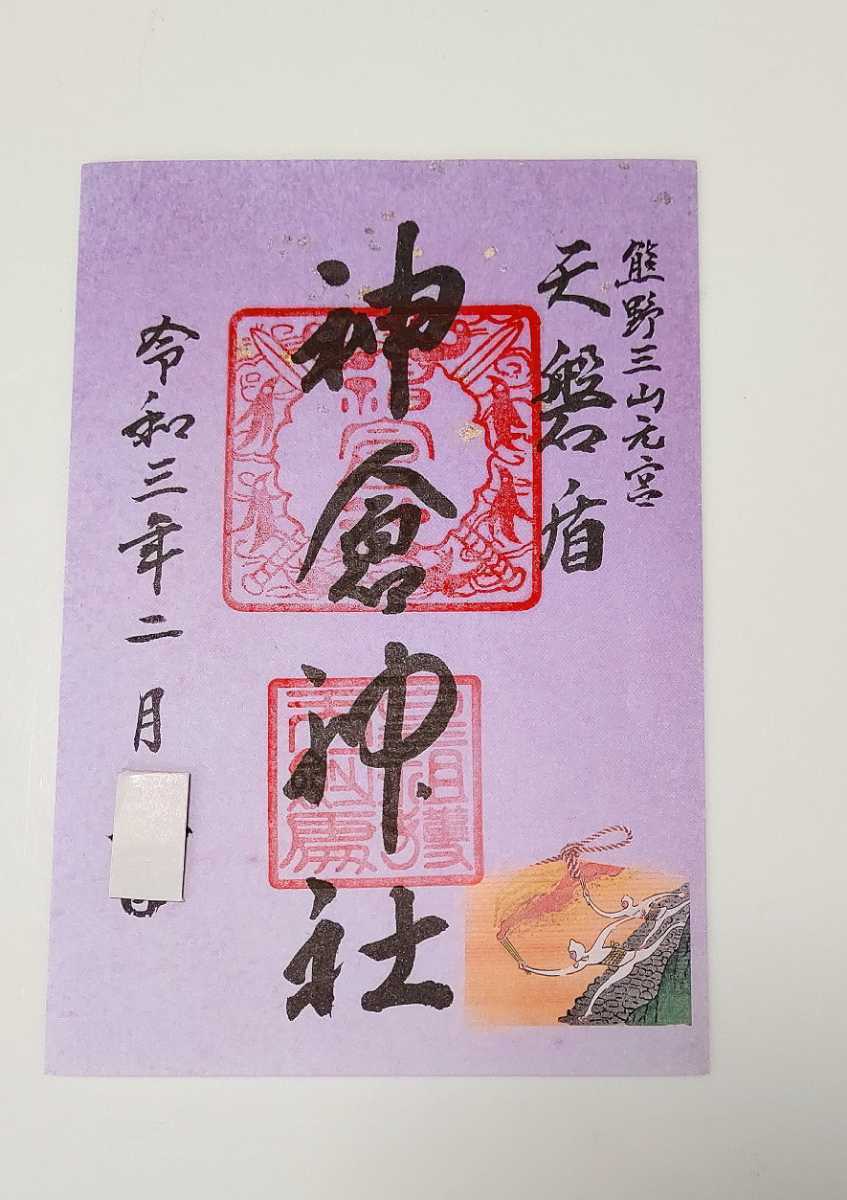 熊野三山元宮
天磐盾
神倉神社
令和三年二月 日